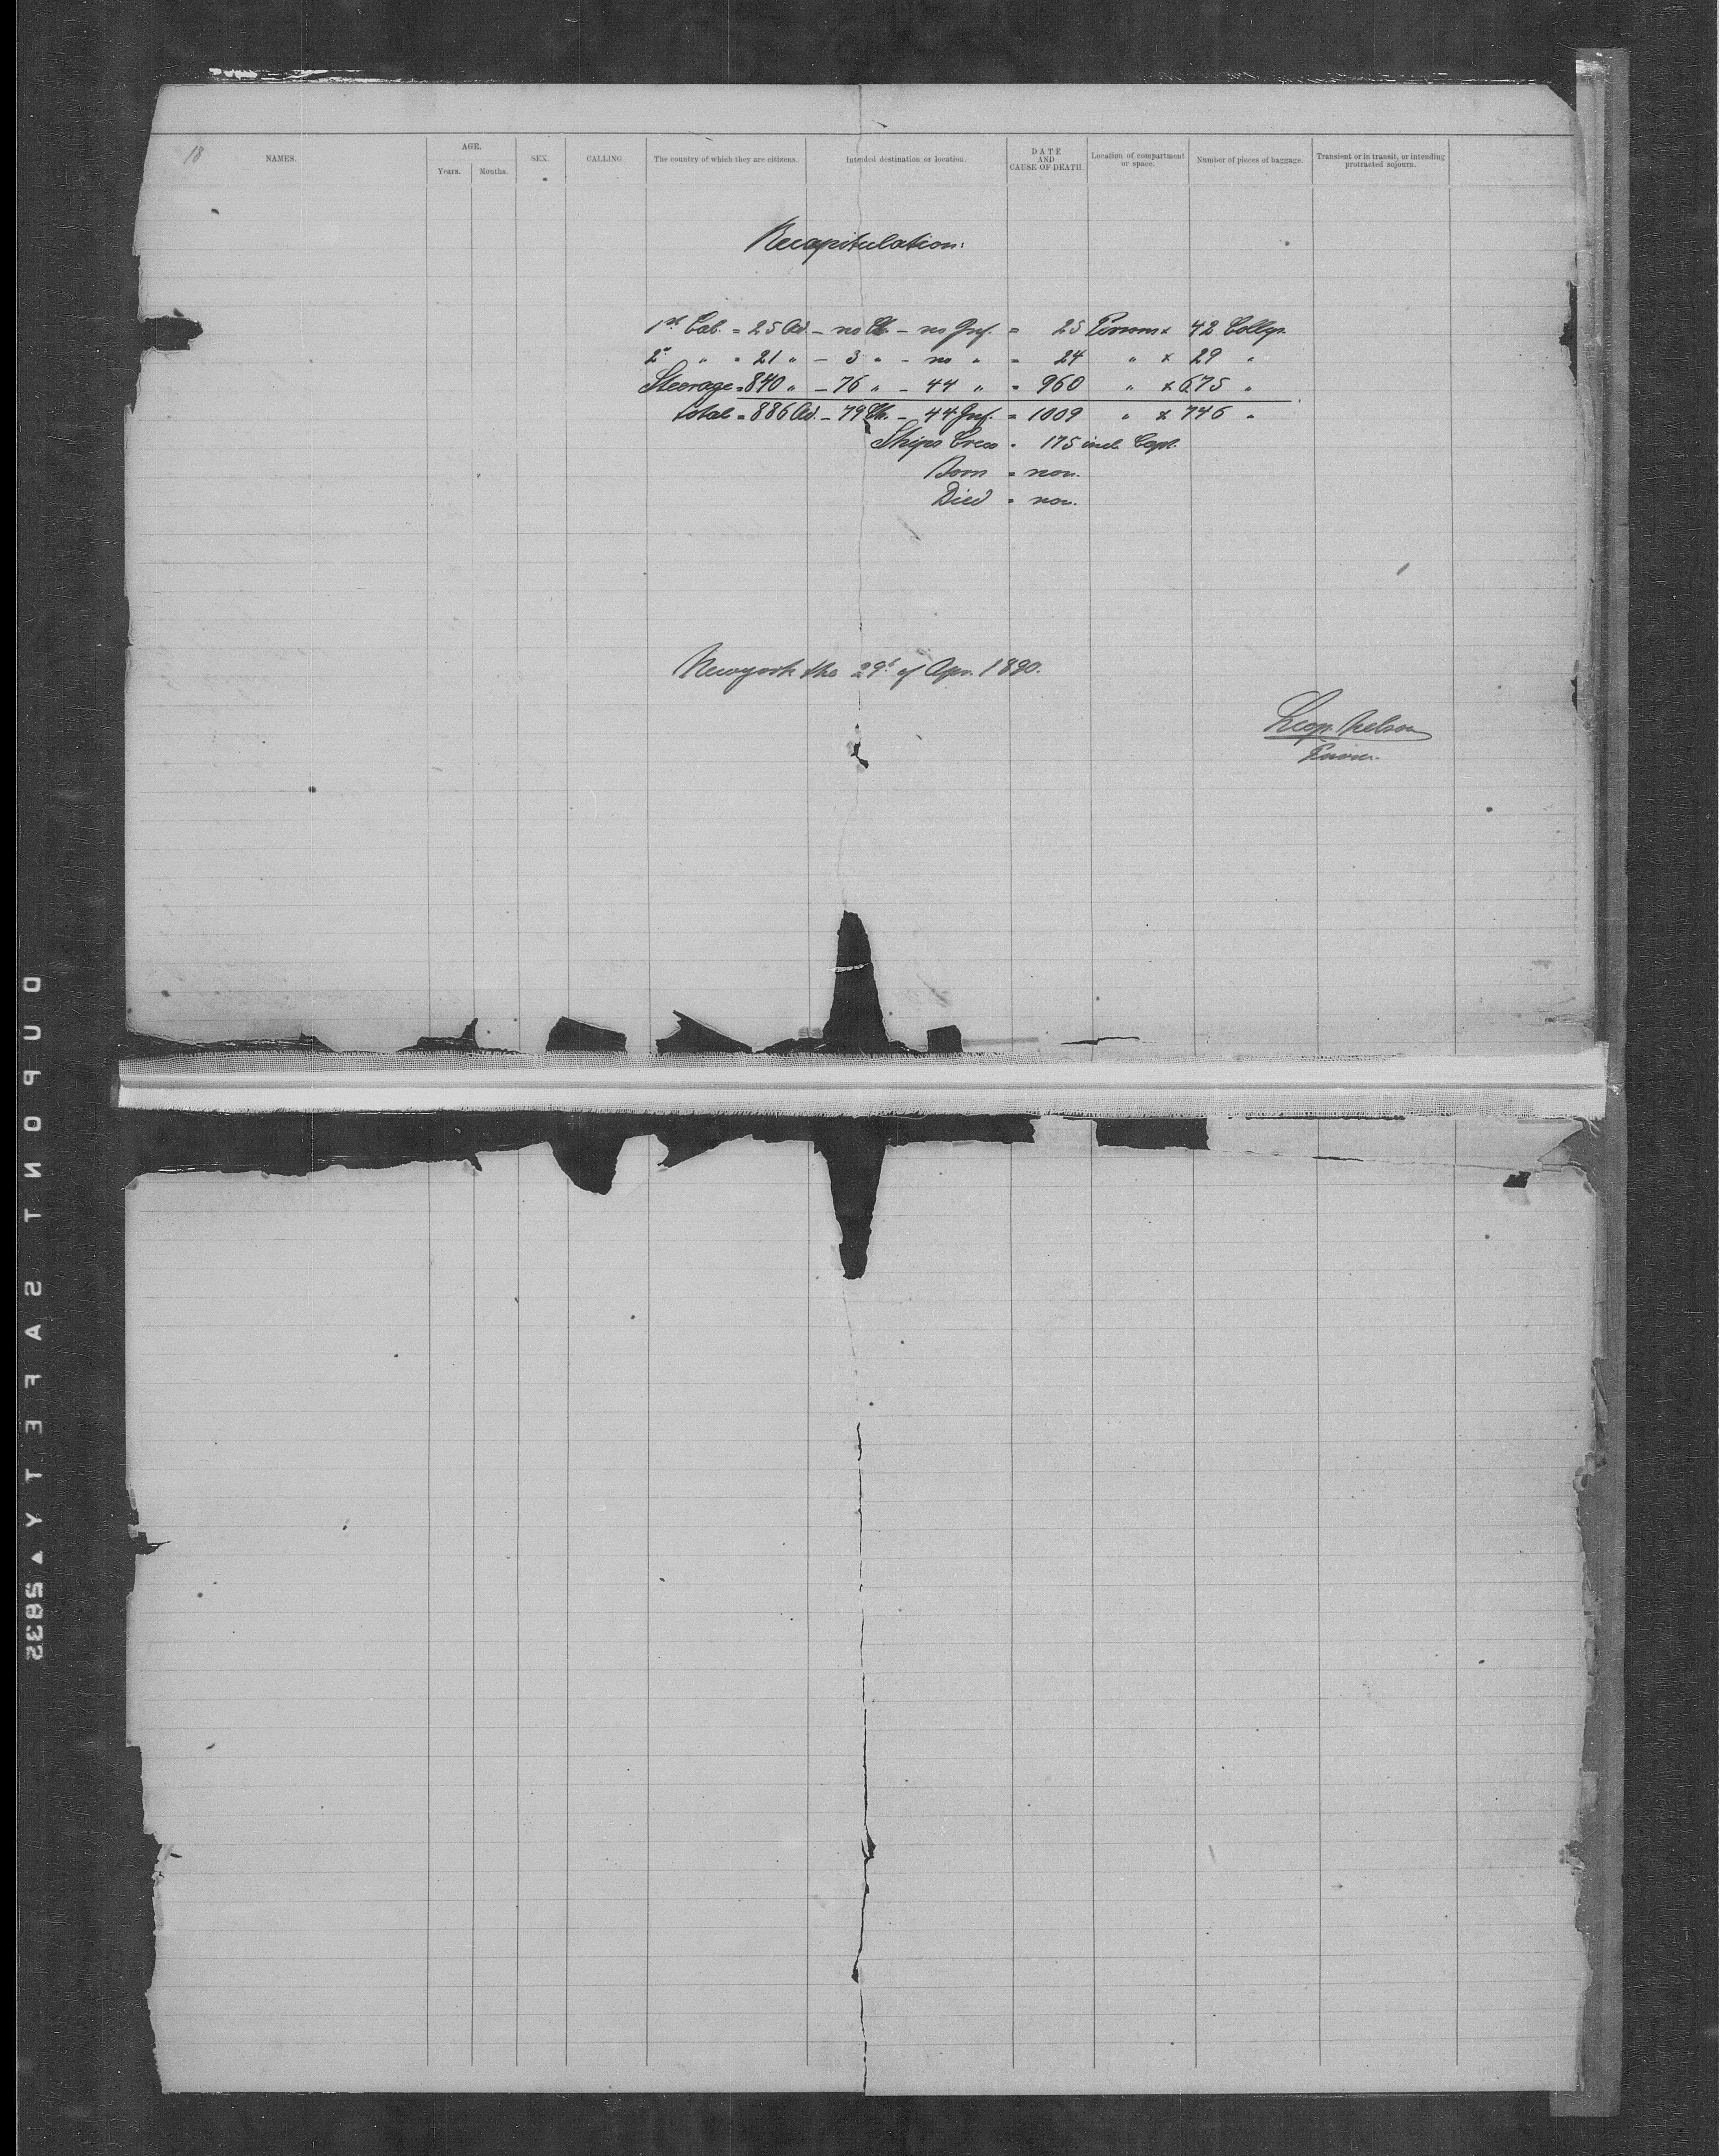 18
NAMES.
AGE.
Years.
Months.
SEX.
CALLING
The country of which they are citizens.
Intended destination or location.
DATE
AND
CAUSE OF DEATH.
Location of compartment
or space.
Number of pieces of baggage.
Transient or in transit, or intending
protracted sojourn.
Recapitulation:
1st Cab. = 25 Ad. - no Ch. - no Inf. = 25 Persons x 42 Collys.
2d " = 21 " - 3 " - no " = 24 " x 29 "
Steerage = 840 " - 76 " - 44 " = 960 " x 675 "
total = 886 Ad. - 79 Ch. - 44 Inf. = 1009 " x 746 "
Ships Crew = 175 incl. Capt.
Born = non.
Died = non.
Newyork the 29t of Apr. 1890.
Leop. Nelson
Purser.
DUPONT SAFETY ▲ 5835